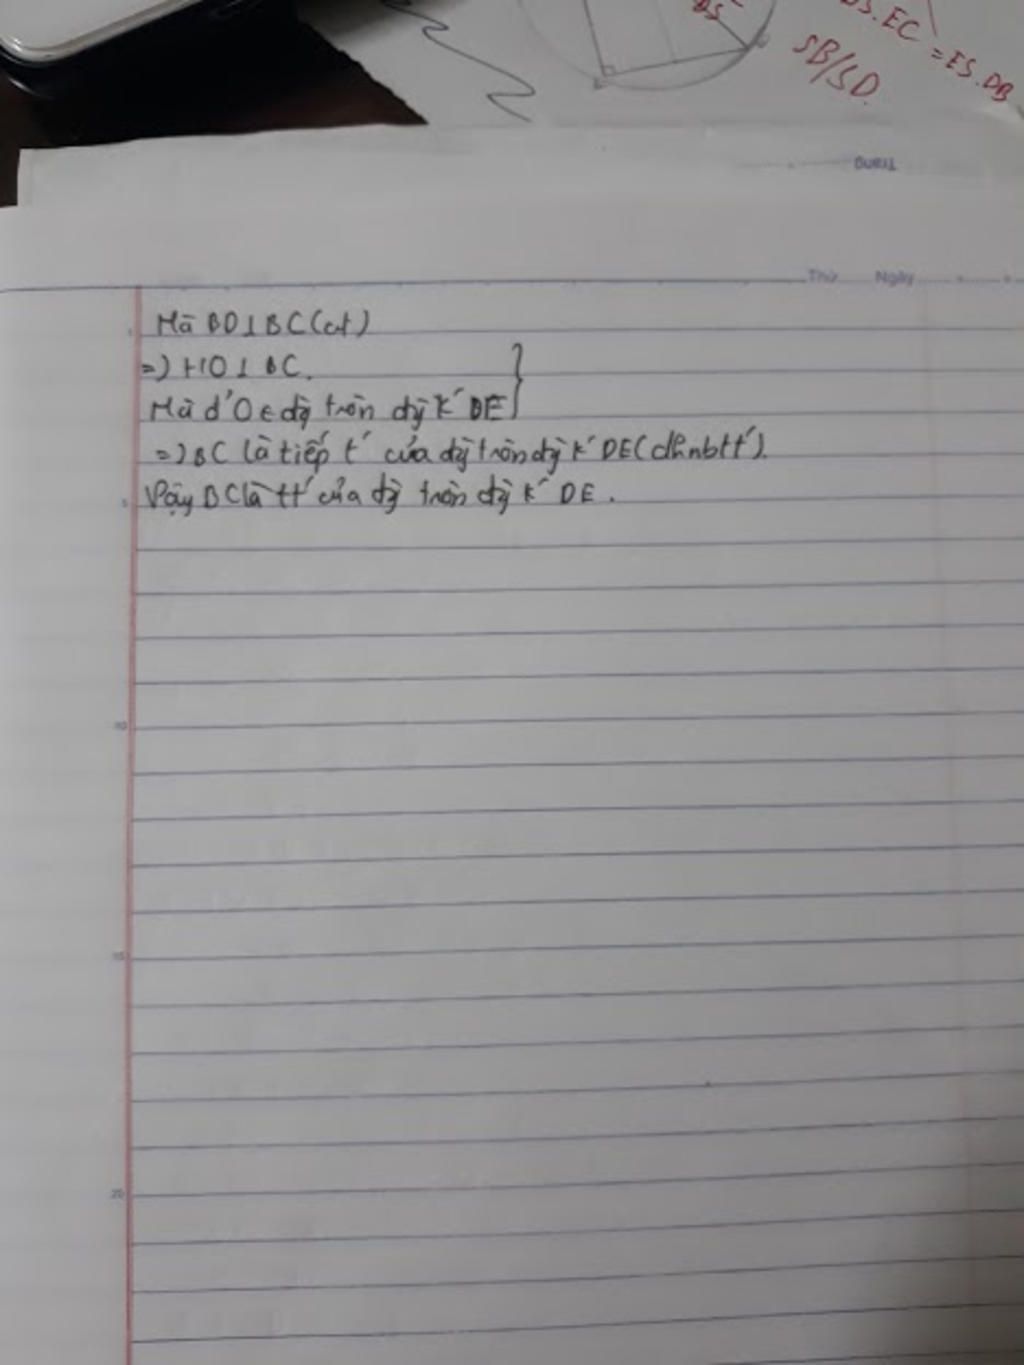 DS
DS.EC = ES.DB
SB/SD.
Trang
Thứ Ngày
Mà BD⊥BC(ct)
=) HO⊥BC.
Mà đ'O∈đg tròn đg k' DE
=) BC là tiếp t' của đg tròn đg k' DE(dhnbtt').
Vậy BC là tt' của đg tròn đg k' DE.
5
10
15
20